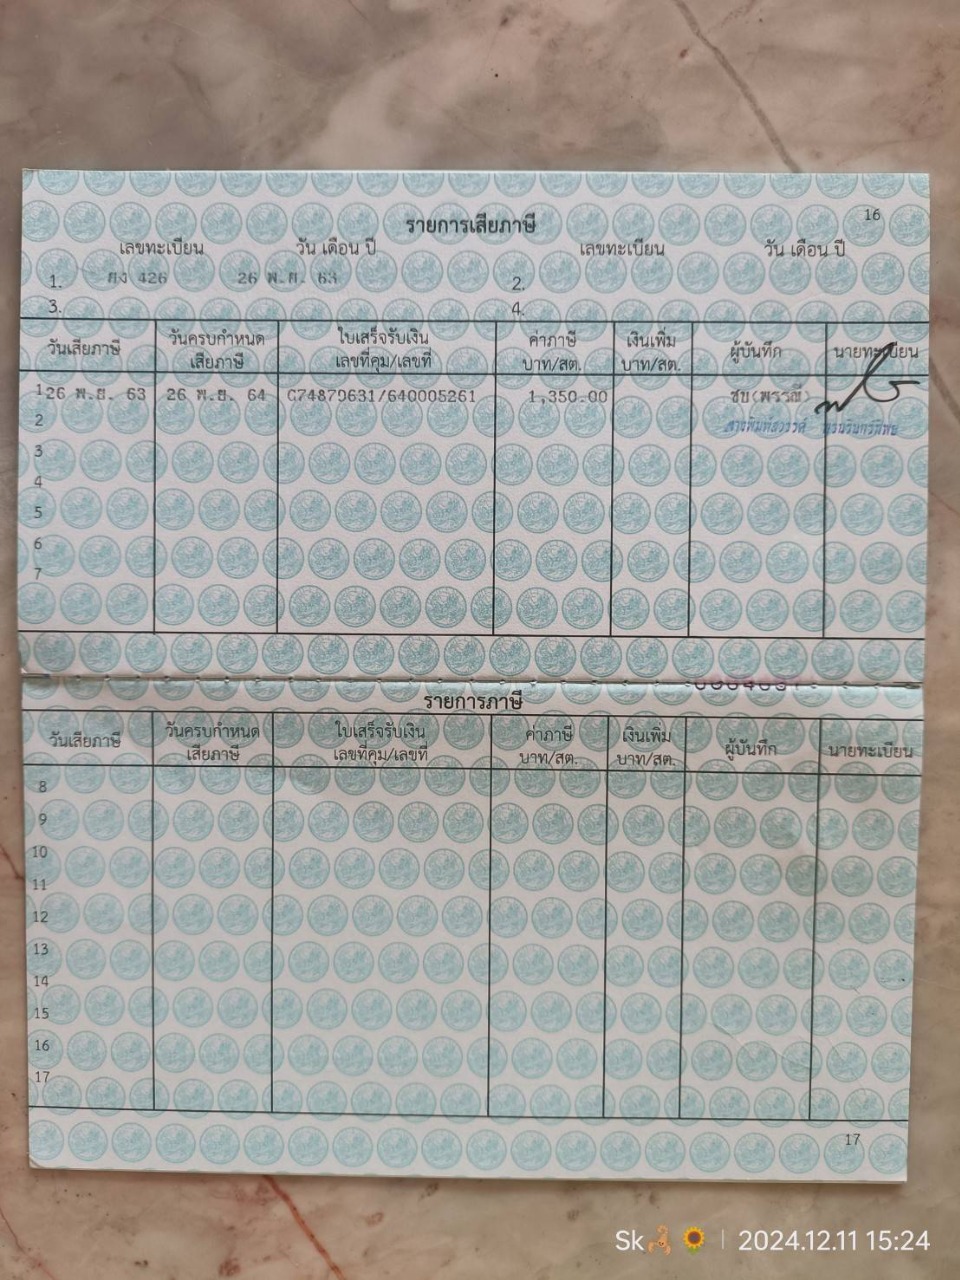 16
รายการเสียภาษี
เลขทะเบียน วัน เดือน ปี เลขทะเบียน วัน เดือน ปี
1. ยง 426 26 พ.ย. 63 2.
3. 4.
วันเสียภาษี วันครบกำหนด เสียภาษี ใบเสร็จรับเงิน เลขที่คุม/เลขที่ ค่าภาษี บาท/สต. เงินเพิ่ม บาท/สต. ผู้บันทึก นายทะเบียน
1 26 พ.ย. 63 26 พ.ย. 64 C74879631/640005261 1,350.00 ชบ(พรรณี)
2
3
4
5
6
7
รายการภาษี
วันเสียภาษี วันครบกำหนด เสียภาษี ใบเสร็จรับเงิน เลขที่คุม/เลขที่ ค่าภาษี บาท/สต. เงินเพิ่ม บาท/สต. ผู้บันทึก นายทะเบียน
8
9
10
11
12
13
14
15
16
17
17
Sk 2024.12.11 15:24